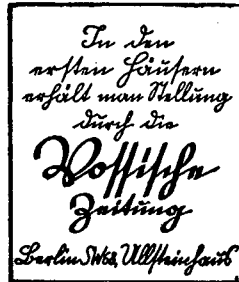 In den
ersten Häusern
erhält man Stellung
durch die
Vossische
Zeitung
Berlin SW68, Ullsteinhaus